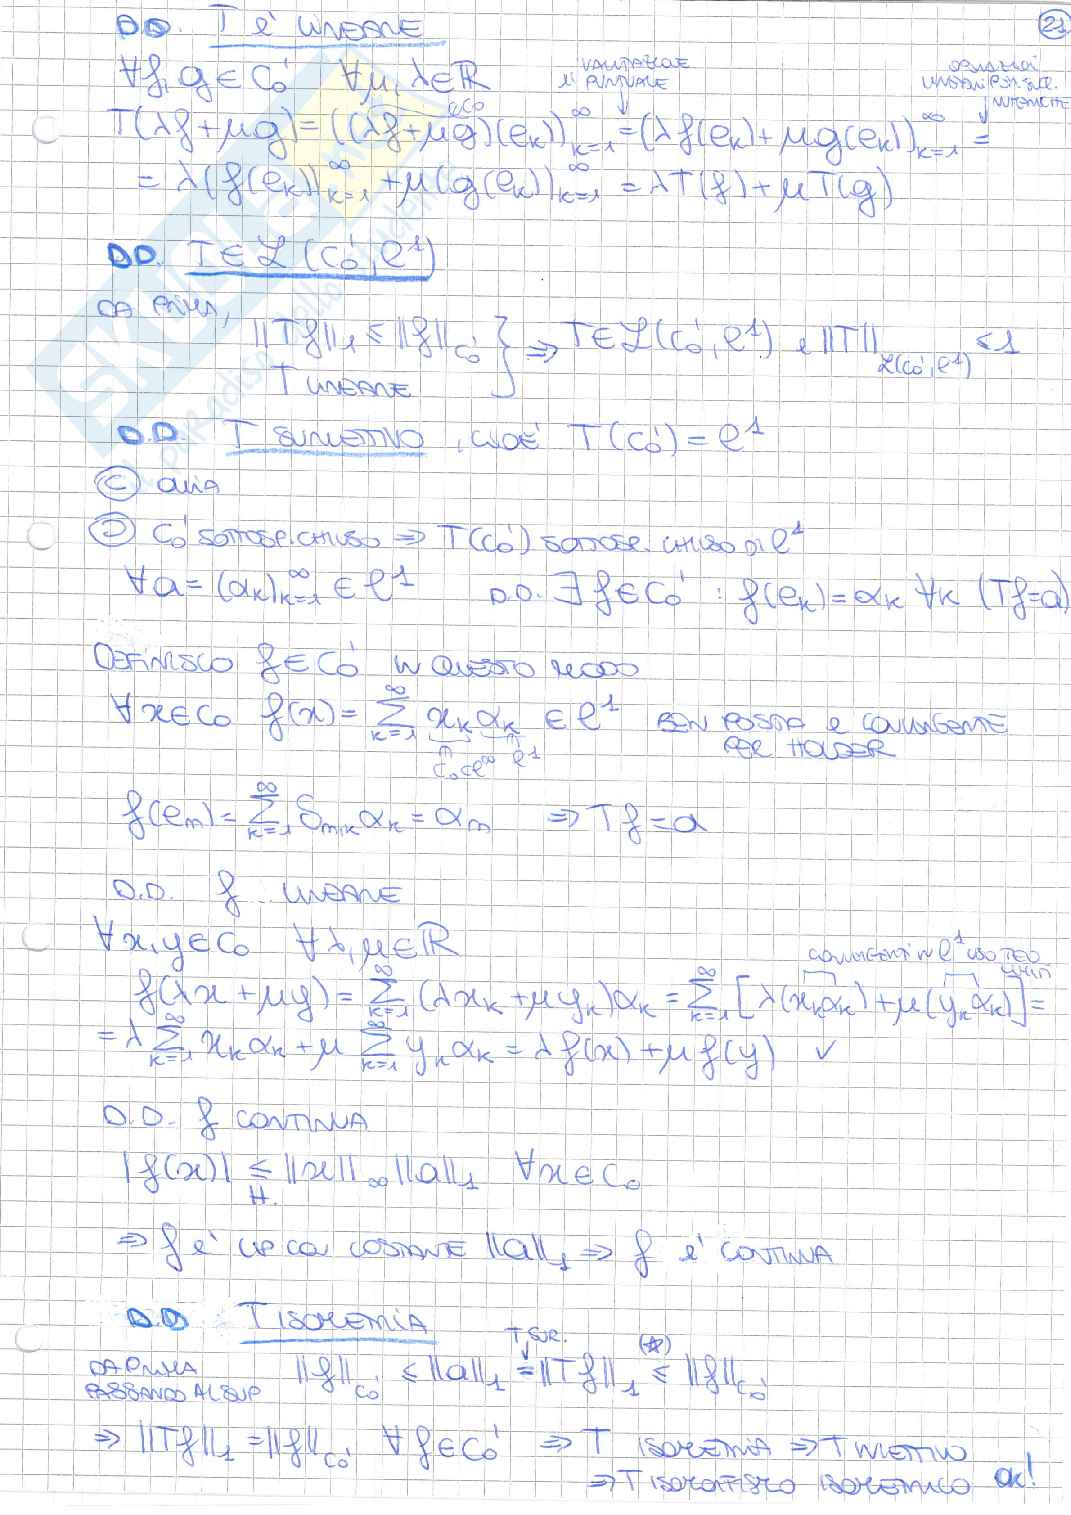 21
D.D. T è LINEARE
∀f, g ∈ C₀' ∀μ, λ ∈ ℝ
VALUTAZIONE È PUNTUALE
OPERAZIONI LINEARI PER SUCC. NUMERICHE
T(λf+μg) = ((λf+μg)(eₖ))ₖ₌₁^∞ = (λf(eₖ)+μg(eₖ))ₖ₌₁^∞ =
= λ(f(eₖ))ₖ₌₁^∞ + μ(g(eₖ))ₖ₌₁^∞ = λT(f) + μT(g)
D.D. T ∈ ℒ(C₀', ℓ¹)
DA PRIMA,
‖Tf‖₁ ≤ ‖f‖_C₀' } ⇒ T ∈ ℒ(C₀', ℓ¹) e ‖T‖_ℒ(C₀', ℓ¹) ≤ 1
T LINEARE
D.D. T SURIETTIVO, CIOÈ T(C₀') = ℓ¹
⊂ OVVIA
⊃ C₀' SOTTOSP. CHIUSO ⇒ T(C₀') SOTTOSP. CHIUSO DI ℓ¹
∀a = (αₖ)ₖ₌₁^∞ ∈ ℓ¹ D.D. ∃f ∈ C₀' : f(eₖ) = αₖ ∀k (Tf=a)
DEFINISCO f ∈ C₀' IN QUESTO MODO
∀x ∈ C₀ f(x) = Σₖ₌₁^∞ xₖ αₖ ∈ ℓ¹ BEN POSTA E CONVERGENTE
C₀⊂ℓ^∞ ℓ¹ PER HOLDER
f(eₘ) = Σₖ₌₁^∞ δₘ,ₖ αₖ = αₘ ⇒ Tf = a
D.D. f LINEARE
∀x, y ∈ C₀ ∀λ, μ ∈ ℝ
CONVERGENTI IN ℓ¹ USO TEO.
f(λx+μy) = Σₖ₌₁^∞ (λxₖ+μyₖ)αₖ = Σₖ₌₁^∞ [λ(xₖαₖ) + μ(yₖαₖ)] =
= λ Σₖ₌₁^∞ xₖαₖ + μ Σₖ₌₁^∞ yₖαₖ = λf(x) + μf(y) ✓
D.D. f CONTINUA
|f(x)| ≤ ‖x‖_∞ ‖a‖₁ ∀x ∈ C₀
H.
⇒ f è LIP. CON COSTANTE ‖a‖₁ ⇒ f è CONTINUA
D.D. T ISOMETRIA
T SUR. (*)
DA PRIMA PASSANDO AL SUP ‖f‖_C₀' ≤ ‖a‖₁ = ‖Tf‖₁ ≤ ‖f‖_C₀'
⇒ ‖Tf‖₁ = ‖f‖_C₀' ∀f ∈ C₀' ⇒ T ISOMETRIA ⇒ T INIETTIVO
⇒ T ISOMORFISMO ISOMETRICO ok!